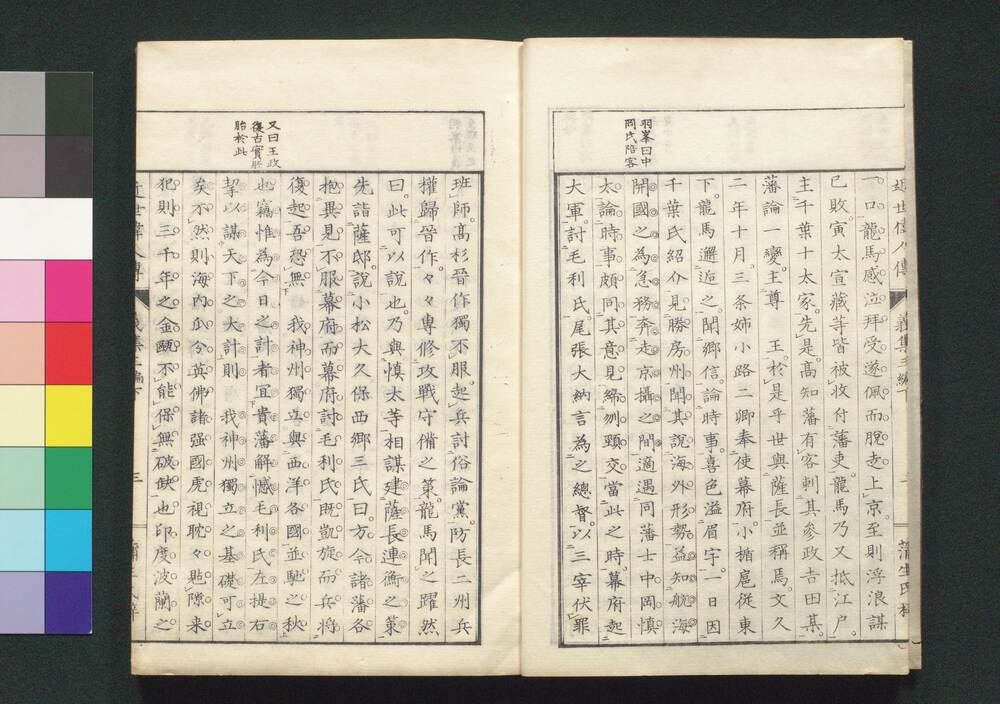 羽峯曰中
岡氏陪客
一口龍馬感泣拜受遂佩而脫走上京至則浮浪謀
已敗寅太宣藏等皆被收付藩吏龍馬乃又抵江戶
主千葉十太家先是高知藩有客刺其參政吉田某
藩論一變主尊　王於是乎世與薩長並稱焉文久
二年十月三条姉小路二卿奉使幕府小楯扈從東
下龍馬邂逅之聞鄉信論時事喜色溢眉宇一日因
千葉氏紹介見勝房州聞其說海外形勢益知航海
開國之為急務奔走京攝之間適遇同藩士中岡慎
太論時事頗同其意見締刎頸交當此之時幕府起
大軍討毛利氏尾張大納言為之總督以三宰伏罪
又曰王政
復古實胚
胎於此
班師高杉晉作獨不服起兵討俗論黨防長二州兵
權歸晉作々々專修攻戰守備之策龍馬聞之躍然
曰此可以說也乃與慎太等相謀建薩長連衡之策
先詣薩邸說小松大久保西鄉三氏曰方今諸藩各
抱異見不服幕府而幕府討毛利氏既凱旋而兵將
復起吾恐無下我神州獨立與西洋各國並馳之秋上
也竊惟為今日之計者宜貴藩解憾毛利氏左提右
挈以謀天下之大計則　我神州獨立之基礎可立
矣不然則海內瓜分英佛諸强國虎視耽々貼隙来
犯則三千年之金甌不能保無破缺也印度波蘭之
近世偉人傳
義集三編下
一
蒲生氏梓
三